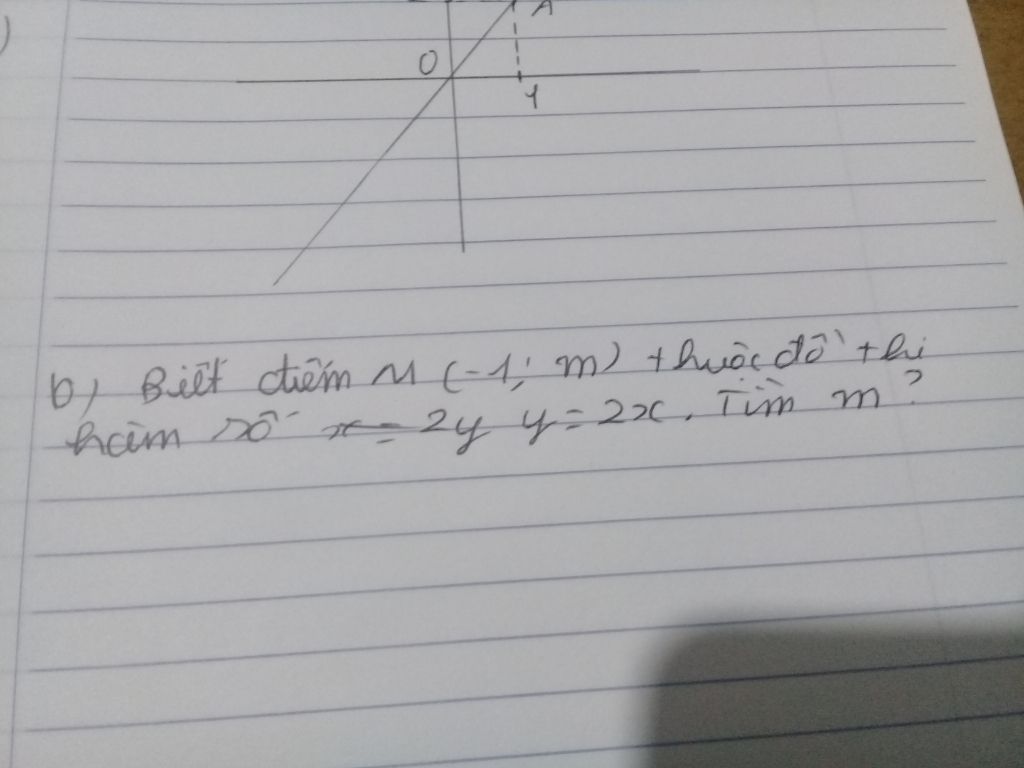 )
A
O
1
b) Biết điểm M (-1; m) thuộc đồ thị
hàm số x = 2y y = 2x. Tìm m?